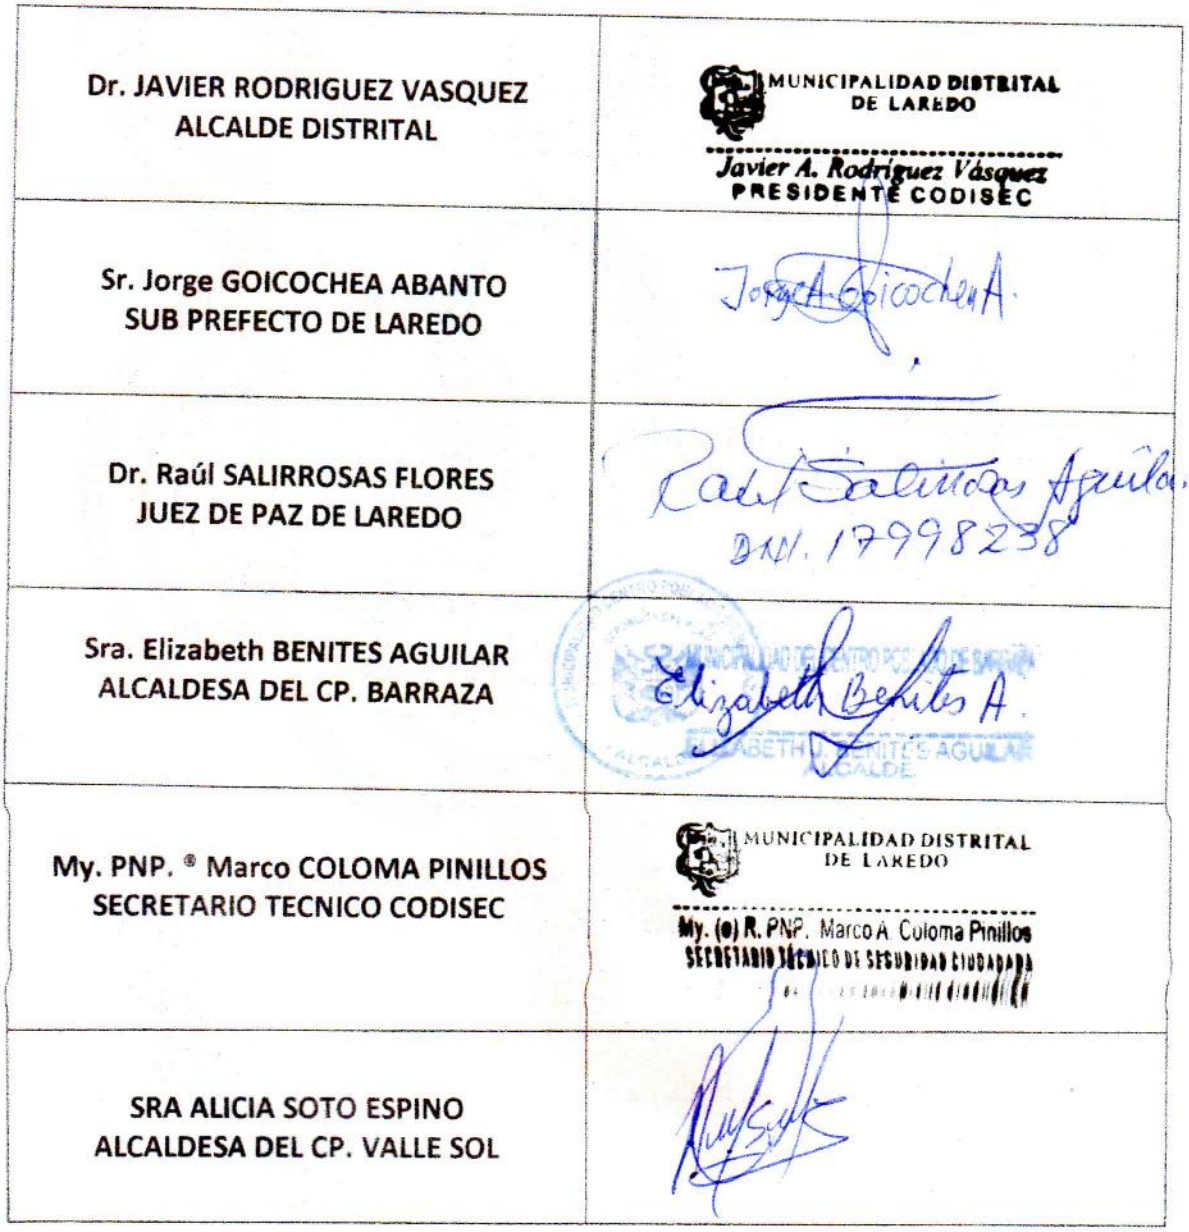 Dr. JAVIER RODRIGUEZ VASQUEZ
ALCALDE DISTRITAL
MUNICIPALIDAD DISTRITAL
DE LAREDO
Javier A. Rodríguez Vásquez
PRESIDENTE CODISEC
Sr. Jorge GOICOCHEA ABANTO
SUB PREFECTO DE LAREDO
Jorge A. Goicochea A.
Dr. Raúl SALIRROSAS FLORES
JUEZ DE PAZ DE LAREDO
Raúl Salirrosas Aguilar
DNI. 17998238
Sra. Elizabeth BENITES AGUILAR
ALCALDESA DEL CP. BARRAZA
MUNICIPALIDAD DEL CENTRO POBLADO DE BARRAZA
Elizabeth Benites A.
ELIZABETH J. BENITES AGUILAR
ALCALDE
My. PNP. ® Marco COLOMA PINILLOS
SECRETARIO TECNICO CODISEC
MUNICIPALIDAD DISTRITAL
DE LAREDO
My. (e) R. PNP. Marco A. Coloma Pinillos
SECRETARIO TÉCNICO DE SEGURIDAD CIUDADANA
SRA ALICIA SOTO ESPINO
ALCALDESA DEL CP. VALLE SOL